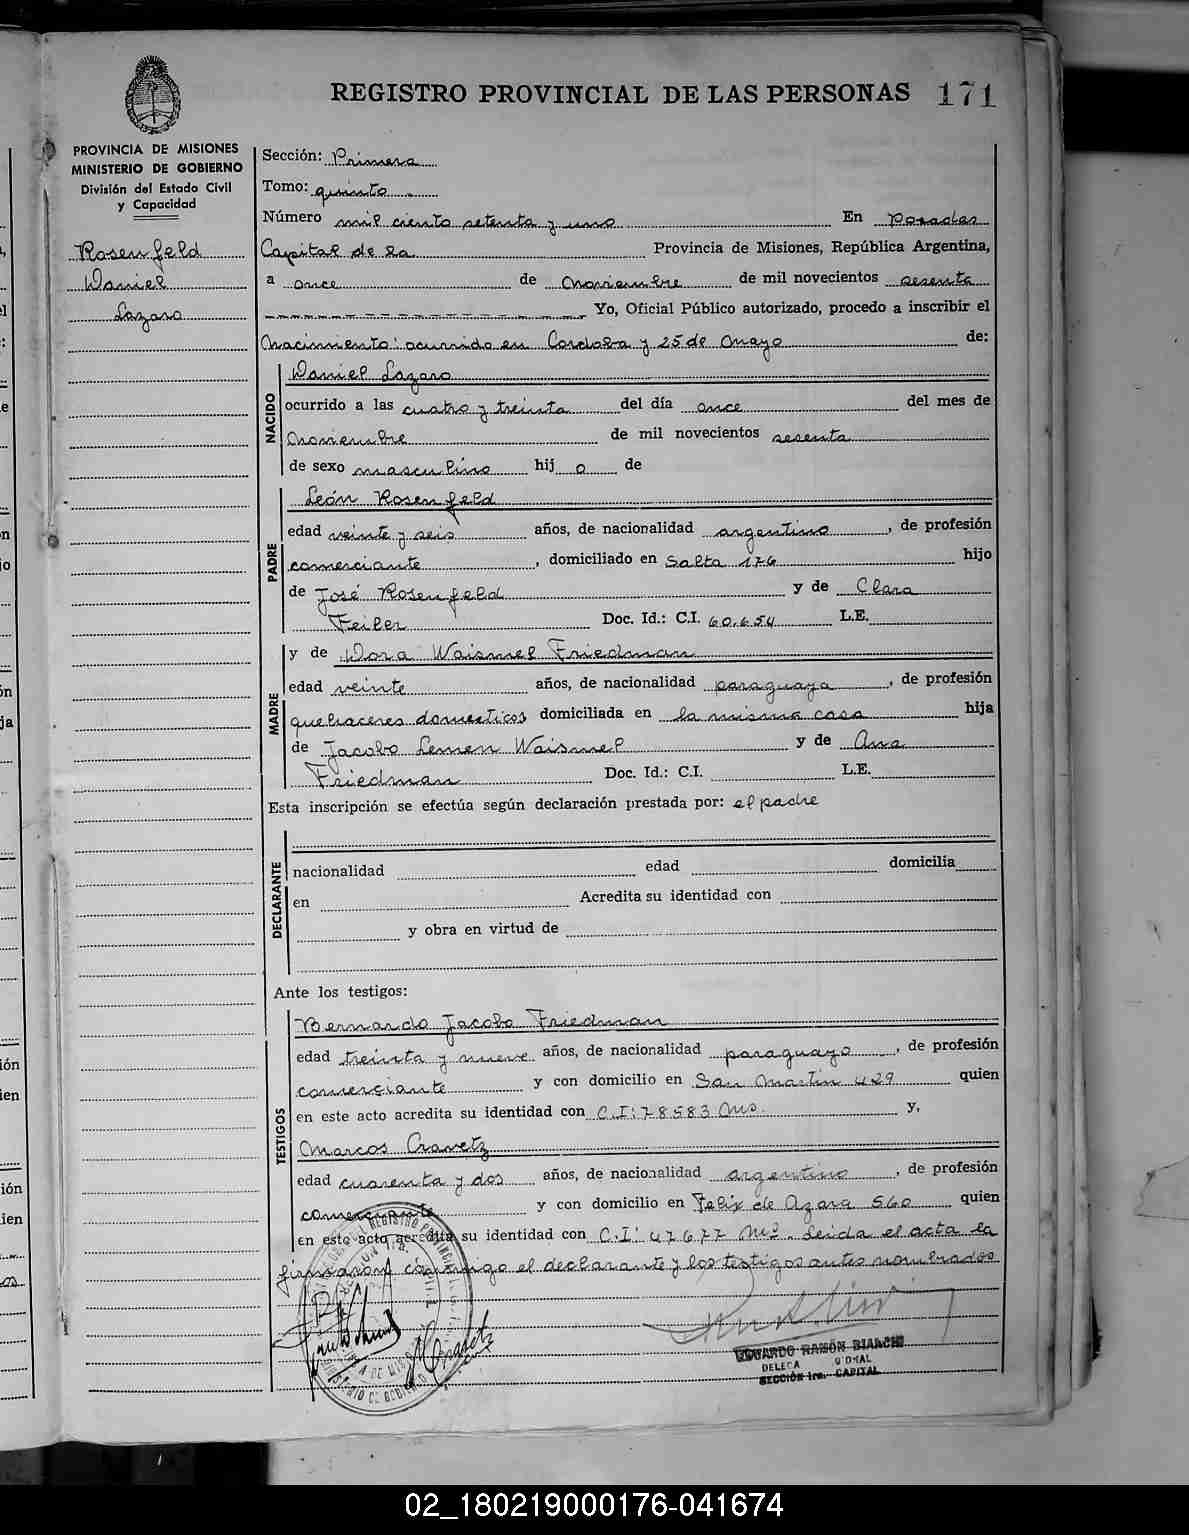 REGISTRO PROVINCIAL DE LAS PERSONAS 171
PROVINCIA DE MISIONES
MINISTERIO DE GOBIERNO
División del Estado Civil
y Capacidad
Rosenfeld
Daniel
Lazaro
Sección: Primera
Tomo: quinto
Número mil ciento setenta y uno En Posadas
Capital de la Provincia de Misiones, República Argentina,
a once de noviembre de mil novecientos sesenta
Yo, Oficial Público autorizado, procedo a inscribir el
Nacimiento: ocurrido en Cordoba y 25 de Mayo de:
NACIDO
Daniel Lazaro
ocurrido a las cuatro y treinta del día once del mes de
Noviembre de mil novecientos sesenta
de sexo masculino hij o de
PADRE
León Rosenfeld
edad veinte y seis años, de nacionalidad argentino, de profesión
comerciante, domiciliado en Salta 176 hijo
de José Rosenfeld y de Clara
Feiler Doc. Id.: C.I. 60.654 L.E.
MADRE
y de Dora Waismel Friedman
edad veinte años, de nacionalidad paraguaya, de profesión
quehaceres domesticos domiciliada en la misma casa hija
de Jacobo Lemen Waismel y de Ana
Friedman Doc. Id.: C.I. L.E.
Esta inscripción se efectúa según declaración prestada por: el padre
DECLARANTE
nacionalidad edad domicilia
en Acredita su identidad con
y obra en virtud de
Ante los testigos:
TESTIGOS
Bernardo Jacobo Friedman
edad treinta y nueve años, de nacionalidad paraguayo, de profesión
comerciante y con domicilio en San Martin 429 quien
en este acto acredita su identidad con C.I: 78583 Ms. y,
Marcos Cravetz
edad cuarenta y dos años, de nacionalidad argentino, de profesión
comerciante y con domicilio en Felix de Azara 560 quien
en este acto acredita su identidad con C.I: 47677 Ms. Leida el acta la
firmaron conmigo el declarante y los testigos antes nombrados
EDUARDO RAMÓN BIANCHI
SECCIÓN 1ra. CAPITAL
02_180219000176-041674